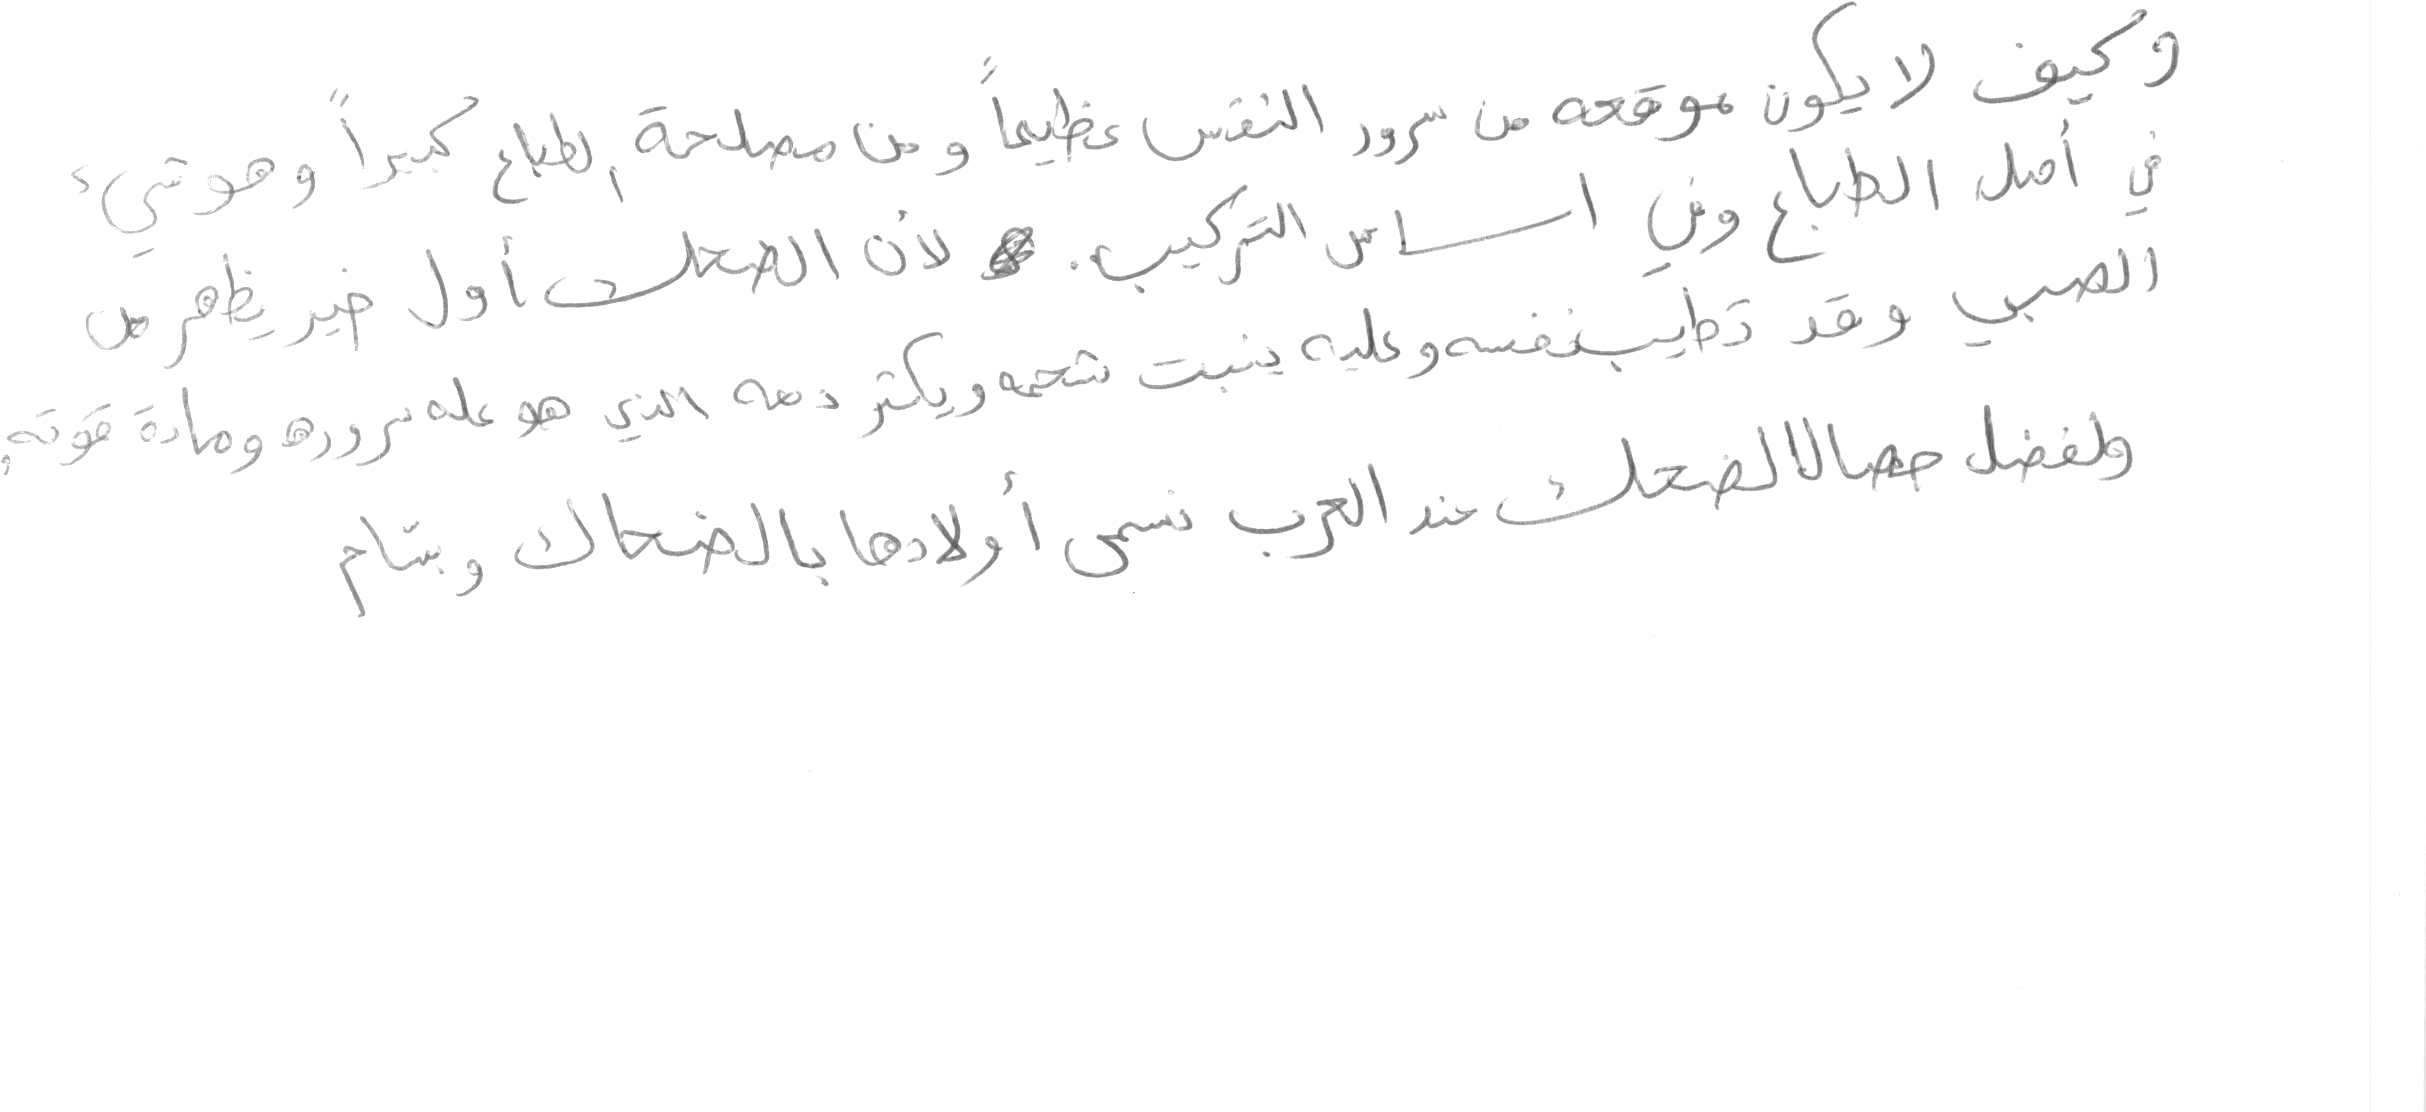 وكيف لا يكون موقعه من سرور النفس عظيماً ومن مصلحة الطباع كبيراً وهو شيء
في أصل الطباع وفي اساس التركيب. لأن الضحك أول خير يظهر من
الصبي وقد تطيب نفسه وعليه ينبت شحمه ويكثر دمه الذي هو عله سروره ومادة قوته,
ولفضل خصال الضحك عند العرب تسمى أولادها بالضحاك وبسّام